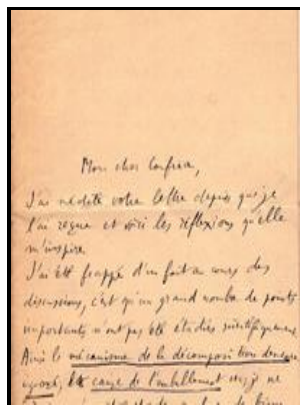 Mon cher Confrère,
J'ai médité votre lettre depuis que je
l'ai reçue et voici les réflexions qu'elle
m'inspire.
J'ai été frappé d'un fait au cours des
discussions, c'est qu'un grand nombre de points
importants n'ont pas été étudiés scientifiquement
Ainsi le mécanisme de la décomposition
cause de l'emballement ne